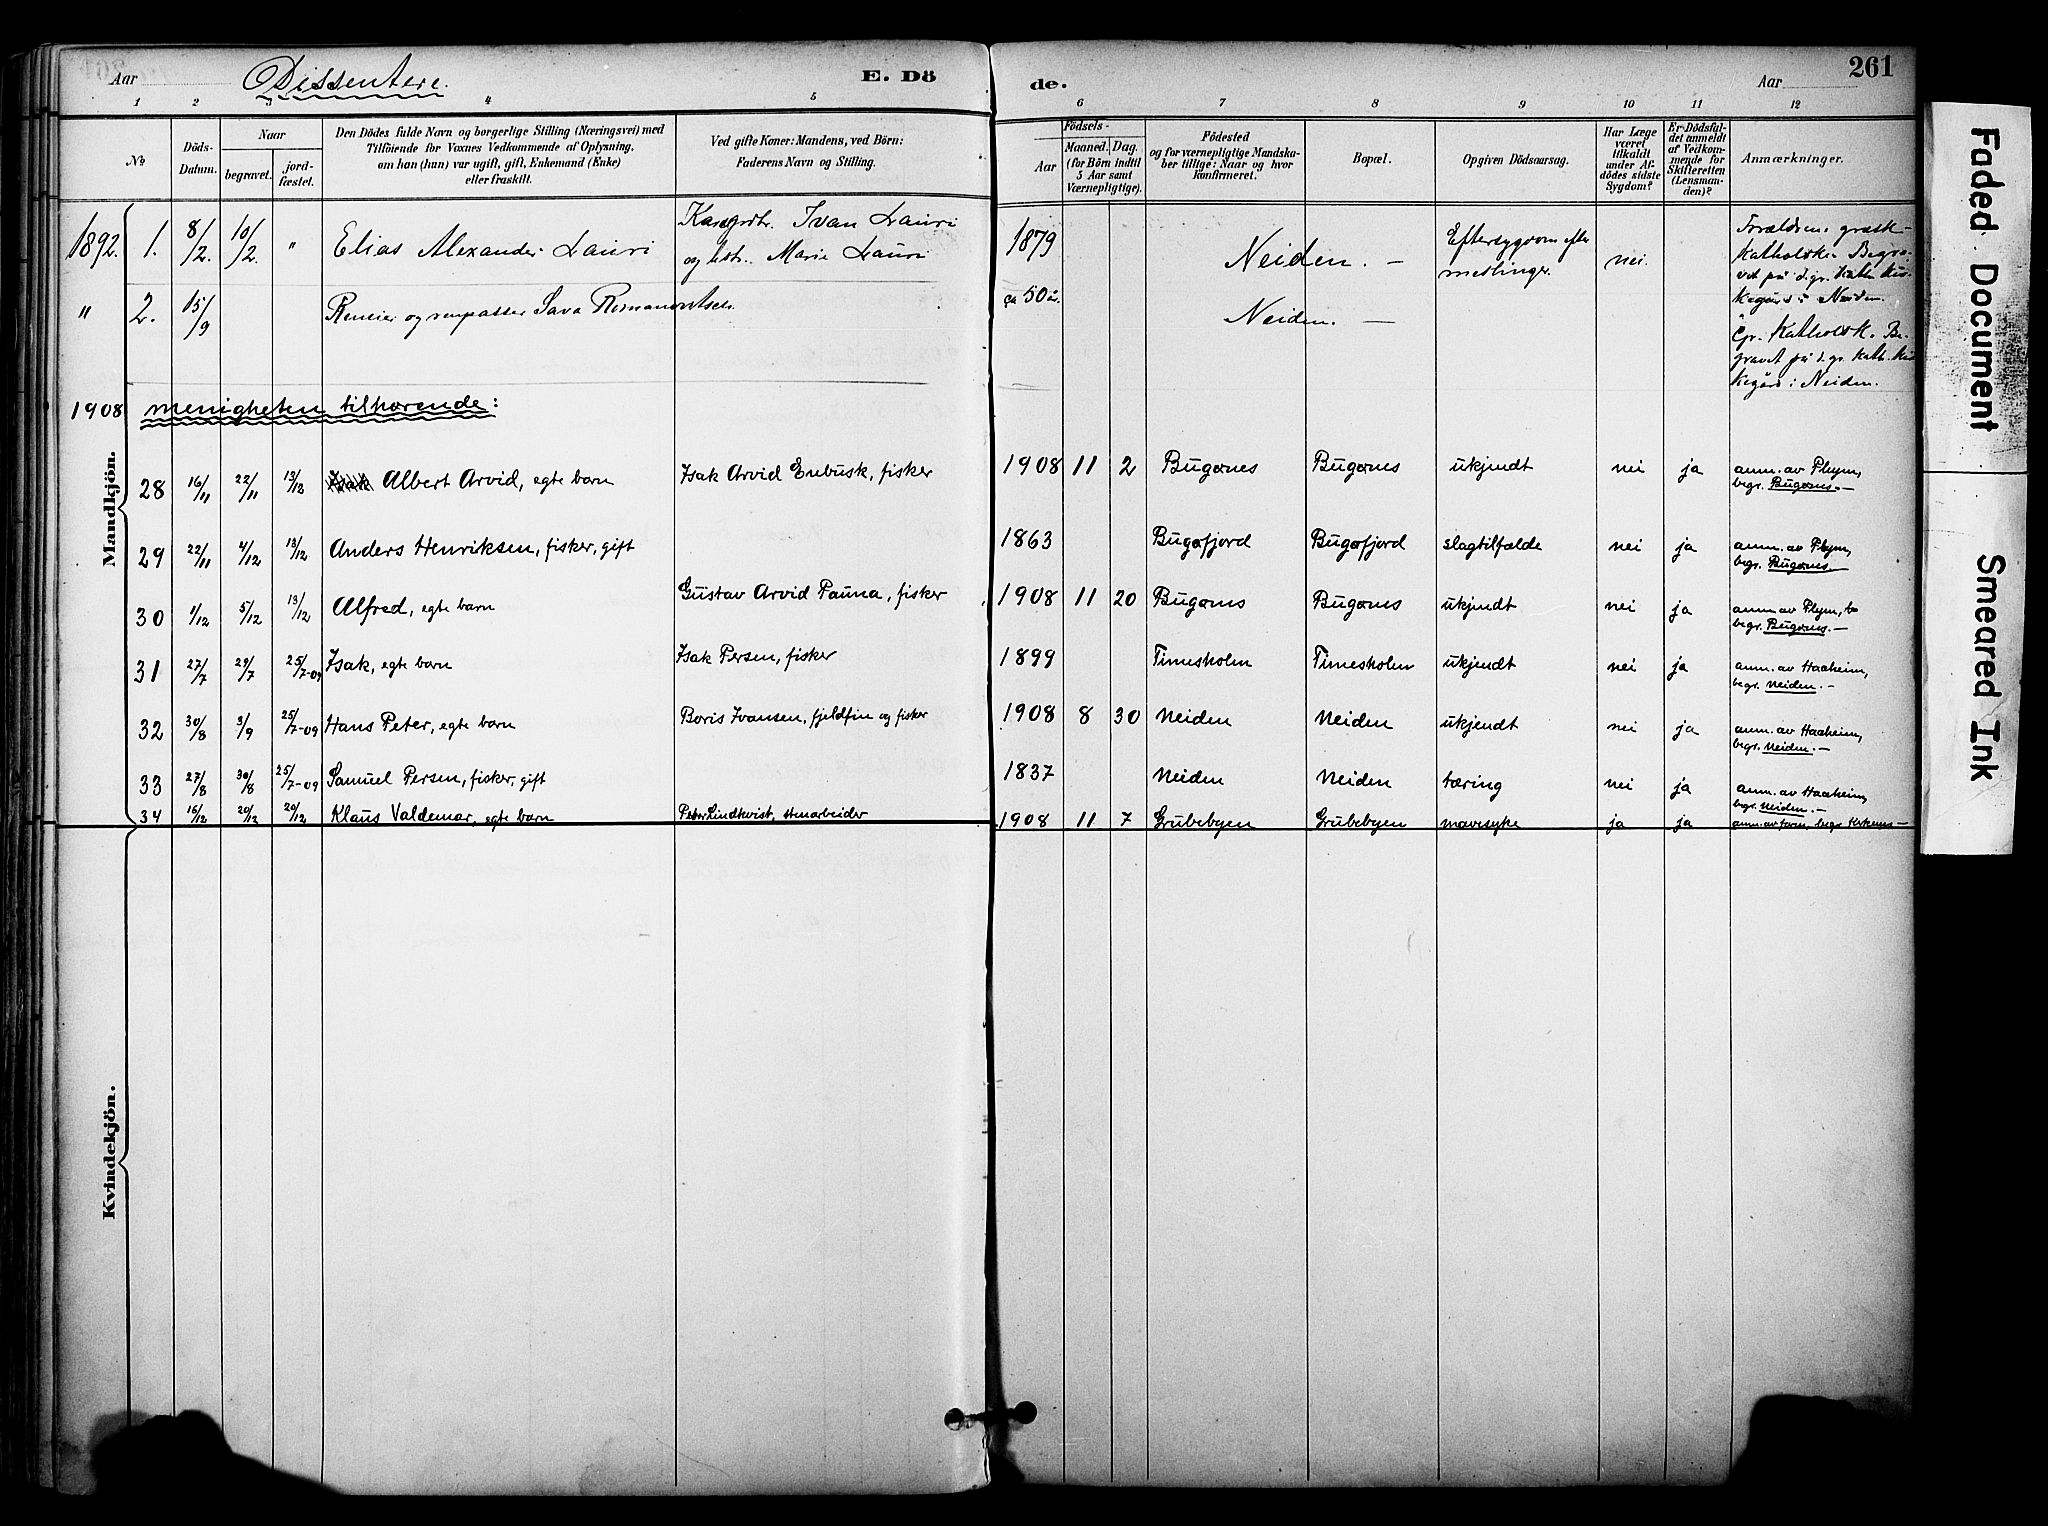 Aar Dissentere. E. Dö de. Aar 261
1 2 3 4 5 6 7 8 9 10 11 12
No
Döds-
Datum.
Naar
begravet.
jord-
fæstet.
Den Dödes fulde Navn og borgerlige Stilling (Næringsvei) med
Tilföiende for Voxnes Vedkommende af Oplysning,
om han (hun) var ugift, gift, Enkemand (Enke)
eller fraskilt.
Ved gifte Koner: Mandens, ved Börn:
Faderens Navn og Stilling.
Födsels-
Aar
Maaned. Dag.
(for Börn indtil
5 Aar samt
Værnepligtige).
Födested
og for værnepligtige Mandska-
ber tillige: Naar og hvor
konfirmeret.
Bopæl.
Opgiven Dödsaarsag.
Har Læge
været
tilkaldt
under Af-
dödes sidste
Sygdom?
Er Dödsfal-
det anmeldt
af Vedkom-
mende for
Skifteretten
(Lensman-
den)?
Anmærkninger.
Mandkjön.
1892. 1. 8/2. 10/2. " Elias Alexander Lauri
Ivan Lauri
og hstr. Marie Lauri
1879 Neiden. —
Eftersygdom efter
meslinger.
nei.
Forældrene græsk-
Katholske. Begra-
vet på d. gr. kath. kir-
kegård i Neiden.
" 2. 15/9 Reneier og renpasser Sava Romanowitsch. ca 50 år. Neiden. —
Gr. Katholsk. Be-
gravet på d. gr. kath. kir-
kegård i Neiden.
1908 menigheten tilhørende:
28 16/11 22/11 13/12 Isak Albert Arvid, egte barn Isak Arvid Enbusk, fisker 1908 11 2 Bugønes Bugønes ukjendt nei ja anm. av Plym,
begr. Bugønes. —
29 22/11 4/12 13/12 Anders Henriksen, fisker, gift 1863 Bugøfjord Bugøfjord slagtilfælde nei ja anm. av Plym,
begr. Bugønes. —
30 1/12 5/12 13/12 Alfred, egte barn Gustav Arvid Pauna, fisker 1908 11 20 Bugønes Bugønes ukjendt nei ja anm. av Plym,
begr. Bugønes. —
31 27/7 29/7 25/7-09 Isak, egte barn Isak Persen, fisker 1899 Timesholm Timesholm ukjendt nei ja anm. av Haaheim,
begr. Neiden. —
32 30/8 3/9 25/7-09 Hans Peter, egte barn Boris Ivansen, fjeldfin og fisker 1908 8 30 Neiden Neiden ukjendt nei ja anm. av Haaheim,
begr. Neiden. —
33 27/8 30/8 25/7-09 Samuel Persen, fisker, gift 1837 Neiden Neiden tæring nei ja anm. av Haaheim,
begr. Neiden. —
34 16/12 20/12 20/12 Klaus Valdemar, egte barn Peter Lindkvist, stenarbeider 1908 11 7 Grubebyen Grubebyen mavesyke ja ja anm. av faren, begr. Kirkenes —
Kvindekjön.
Faded Document
Smeared Ink